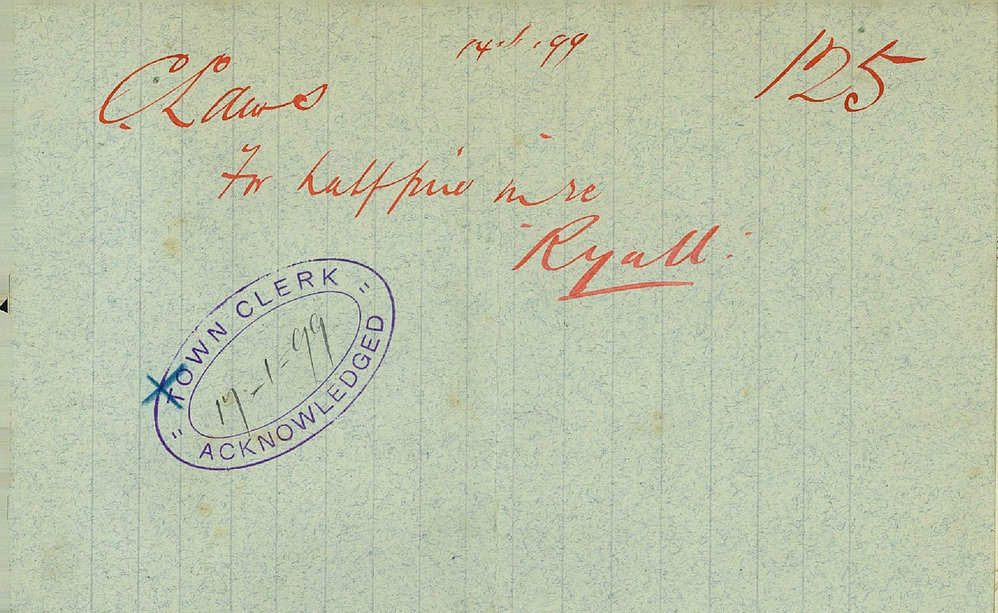 14.1.99
125
C. Laws
For half fine in re
"Ryall"
"TOWN CLERK"
17-1-99
ACKNOWLEDGED